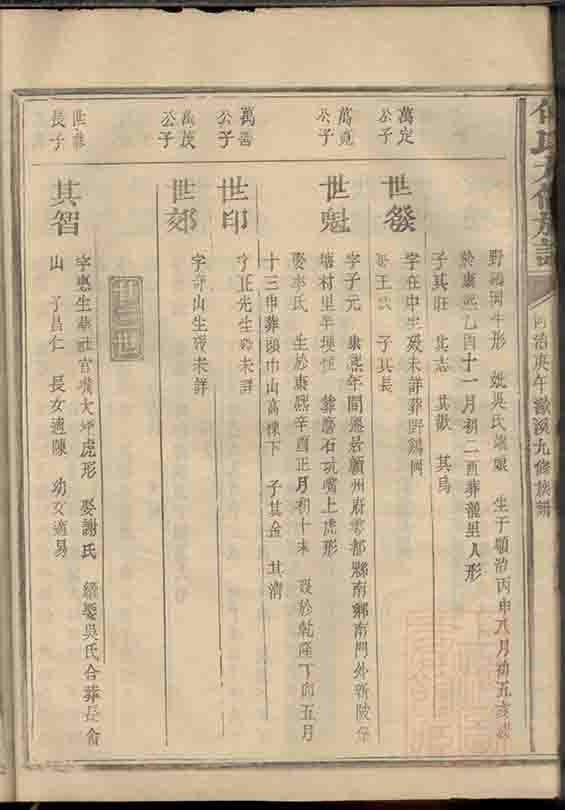 何氏九修族譜
同治庚午瀲溪九修族譜
野鷄岡牛形 妣吳氏 生于順治丙申八月初五亥
於康熙乙酉十一月初二酉葬龍里人形
子其旺 其志 其獻 其鳥
萬定公子
世發
字在中生歿未詳葬野鷄岡
王氏 子其長
萬竟公子
世魁
字子元 康熙年間遷居贛州府雩都縣南鄉南門外新陂
塘村里 葬磨石坑嘴上虎形
娶李氏 生於康熙辛酉正月初十未 歿於乾隆丁卯五月
十三申葬頭巾山高棟下 子其金 其清
萬 公子
世印
字正光生歿未詳
萬 公子
世郊
字奇山生歿未詳
廿三世
世 長子
其智
字惠生葬社官嘴大坪虎形 娶謝氏 續娶吳氏合葬長
山 子昌仁 長女適陳 幼女適易